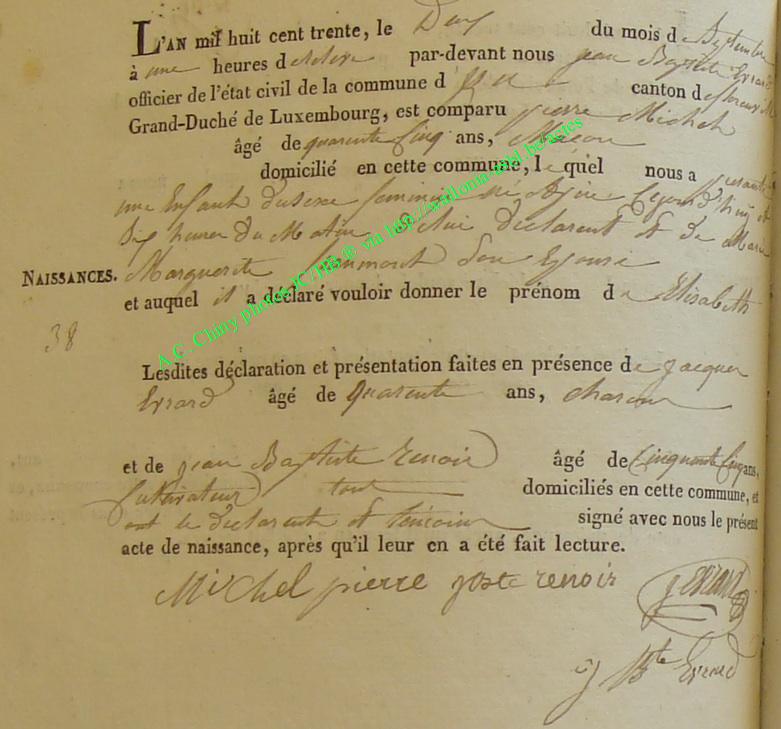 L'AN mil huit cent trente, le Deux du mois de Septembre
à une heures de par-devant nous jean Baptiste Evrard
officier de l'état civil de la commune d canton de florenville
Grand-Duché de Luxembourg, est comparu pierre Michel
âgé de quarente Cinq ans, Macon
domicilié en cette commune, lequel nous a presenté
une Enfant du sexe feminin né
Dix heures du Matin, de lui declarent et de Marie
NAISSANCES. Marguerite son Epouse
et auquel il a déclaré vouloir donner le prénom d'Elisabeth
38
Lesdites déclaration et présentation faites en présence de jacques
Evrard âgé de quarente ans, charon
et de jean Baptiste renoir âgé de Cinquente Cinq ans,
Cultivateur tout domiciliés en cette commune, et
ont le declarents et temoins signé avec nous le présent
acte de naissance, après qu'il leur en a été fait lecture.
Michel pierre renoir j evrard
j Bte Evrard
A.C. Chiny photos JC/HB ® via http://wallonia-gbl.be/actes